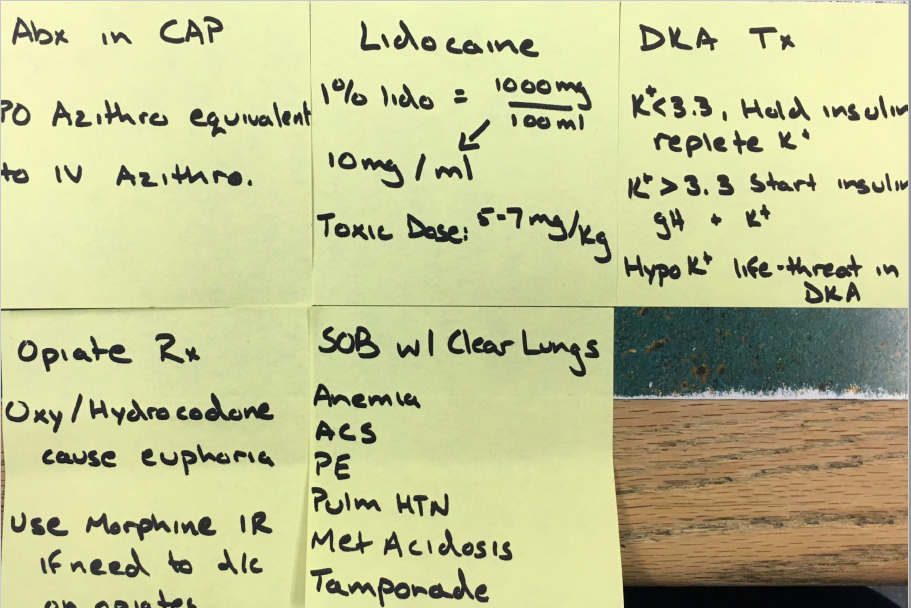 Abx in CAP
PO Azithro equivalent
to IV Azithro.
Lidocaine
1% lido = 1000mg
100ml
10mg/ml
Toxic Dose: 5-7mg/kg
DKA Tx
K+<3.3, Hold insulin
replete K+
K+>3.3 Start insulin
gtt + K+
Hypo K+ life-threat in
DKA
Opiate Rx
Oxy/Hydrocodone
cause euphoria
Use Morphine IR
if need to d/c
on opiates
SOB w/ Clear Lungs
Anemia
ACS
PE
Pulm HTN
Met Acidosis
Tamponade